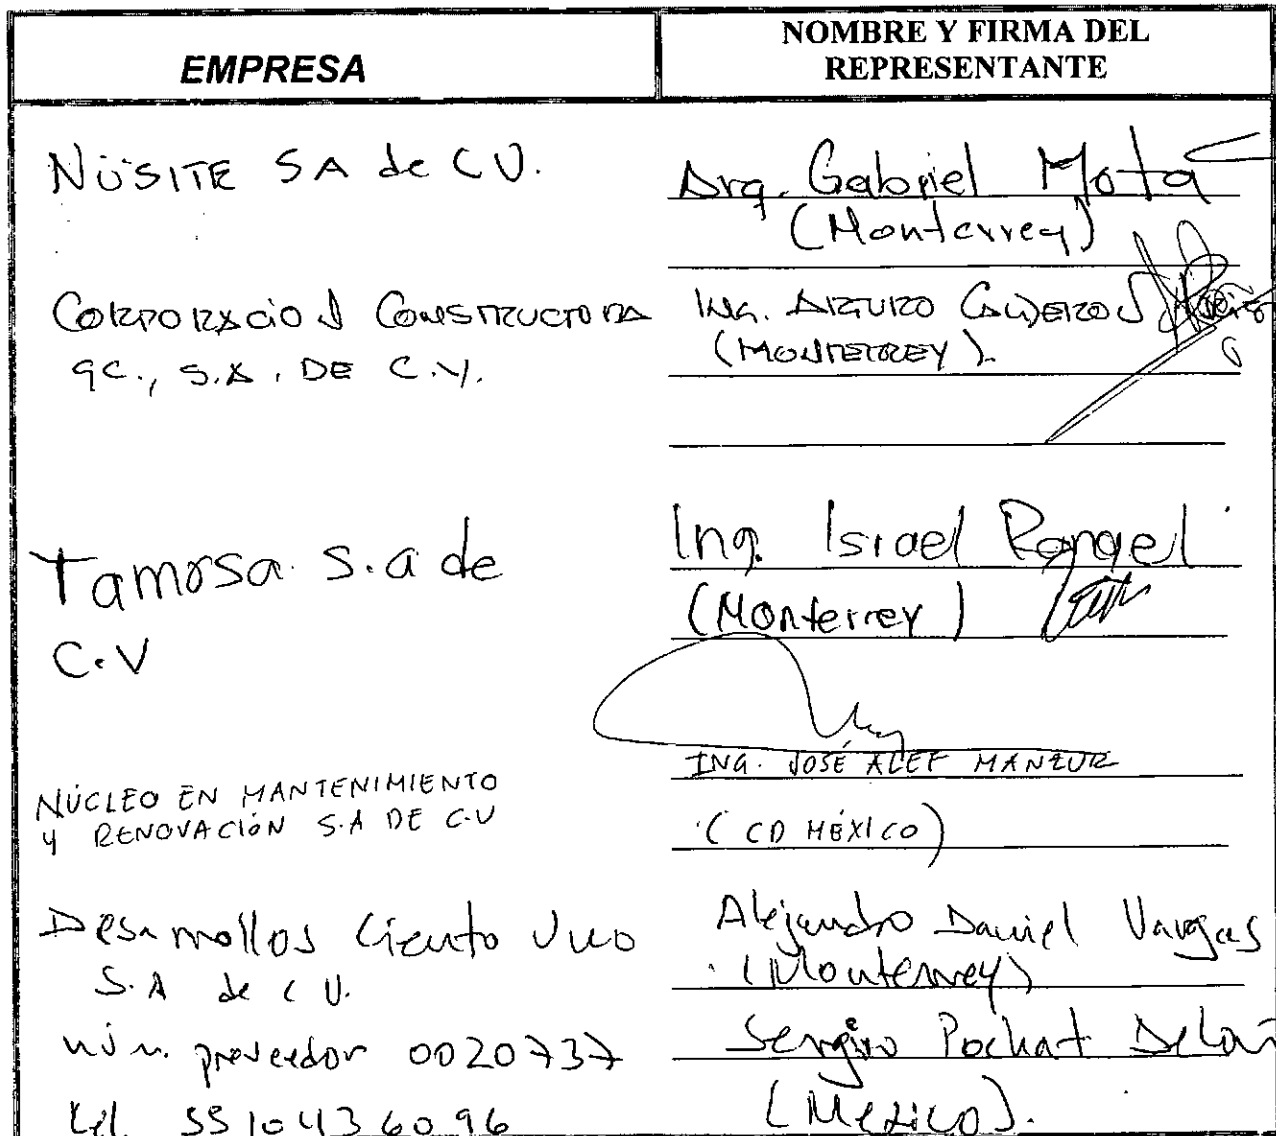 EMPRESA
NOMBRE Y FIRMA DEL
REPRESENTANTE
NÜSITE SA de C.V.
Arq. Gabriel Mota
(Monterrey)
CORPORACION CONSTRUCTORA
GC., S.A. DE C.V.
ING. ARTURO CALDERON
(MONTERREY).
Tamosa S.a de
C.V
Ing. Israel Rangel
(Monterrey)
NÚCLEO EN MANTENIMIENTO
Y RENOVACIÓN S.A DE C.V
ING. JOSÉ ALEF MANZUR
(CD MÉXICO)
Desarrollos Ciento Uno
S.A de C V.
núm. proveedor 0020737
tel. 5510436096
Alejandro Daniel Vargas
(Monterrey)
Sergio Pochat
(Mexico).